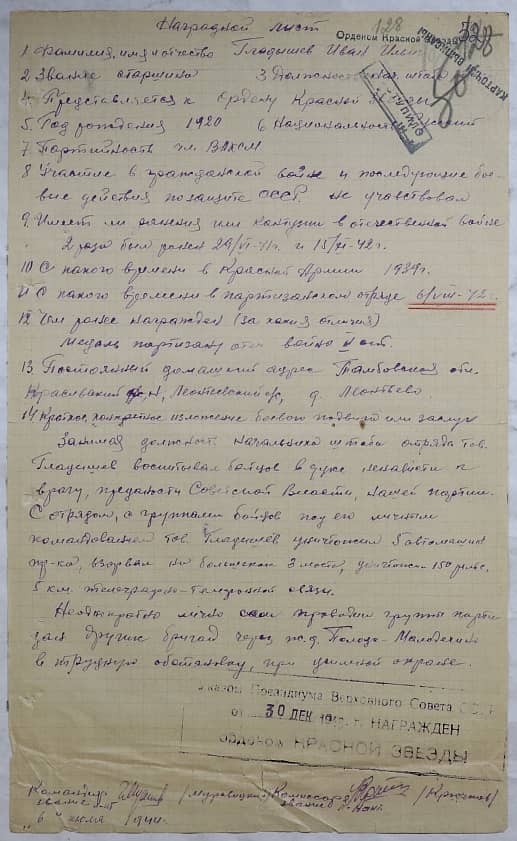 Наградной лист
128
Орденом Красной Звезды
1 Фамилия, имя и отчество Гладышев Иван
2. Звание старшина 3. Должность нач. штаба
4. Представляется к Ордену Красной Звезды
5. Год рождения 1920 6 Национальность русский
7. Партийность чл. ВЛКСМ
8 Участие в гражданской войне и последующие бое-
вые действия по защите СССР. не участвовал
9. Имеет ли ранения или контузии в отечественной войне
2 раза был ранен 29/VI-41г. и 15/VI-42г.
10 С какого времени в Красной Армии 1939г.
11 С какого времени в партизанском отряде 6/VIII-42г.
12 Чем ранее награжден (за какия отличия)
Медаль партизану отеч войны II ст.
13 Постоянный домашний адрес Тамбовская обл.
Красивский р-н, Леонтьевский с/с, д. Леонтьево
14 Краткое, конкретное изложение боевого подвига или заслуг
Занимая должность начальника штаба отряда тов.
Гладышев воспитывал бойцов в духе ненависти к
врагу, преданости Советской Власти, нашей партии.
С отрядом, с группами бойцов под его личным
командованием тов. Гладышев уничтожил 5 автомашин
пр-ка, взорвал на большаках 3 моста, 150 рельс.
5 км. телеграфно-телефонной связи.
Неоднократно лично сам проводил группы парти
зан других бригад через ж.д. Полоцк-Молодечно
в трудную обстановку, при усиленной охране.
Указом Президиума Верховного Совета СССР
от 30 ДЕК г. НАГРАЖДЕН
орденом КРАСНОЙ ЗВЕЗДЫ
Командир Комиссар
звание звание
"6" июля 1944г.